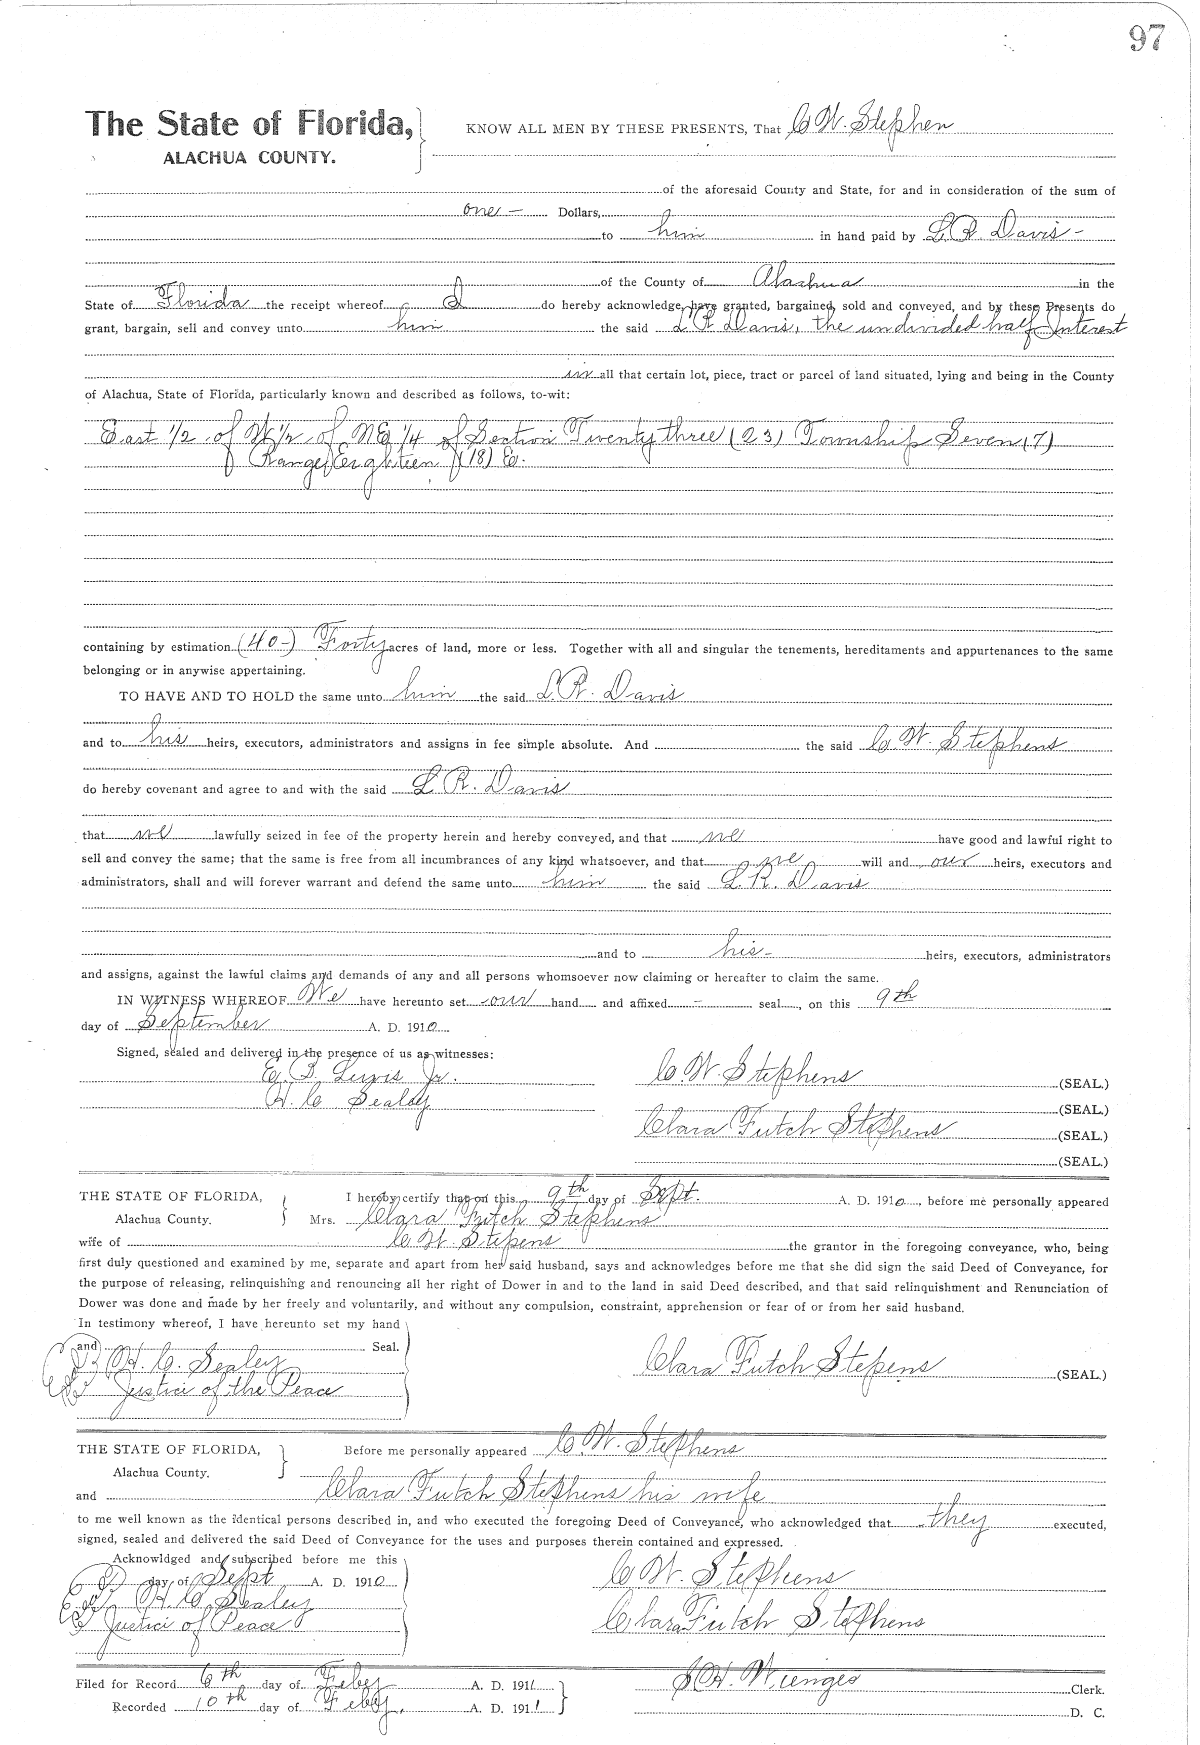 97
The State of Florida,
ALACHUA COUNTY.
KNOW ALL MEN BY THESE PRESENTS, That C W. Stephen
of the aforesaid County and State, for and in consideration of the sum of
one - Dollars,
to him in hand paid by L. R. Davis -
of the County of Alachua in the
State of Florida the receipt whereof I do hereby acknowledge, have granted, bargained, sold and conveyed, and by these Presents do
grant, bargain, sell and convey unto him the said L R Davis, the undivided half Interest
in all that certain lot, piece, tract or parcel of land situated, lying and being in the County
of Alachua, State of Florida, particularly known and described as follows, to-wit:
East 1/2 of W 1/2 of NE 1/4 of Section Twenty three (23) Township Seven (7)
Range Eighteen (18) E.
containing by estimation (40-) Forty acres of land, more or less. Together with all and singular the tenements, hereditaments and appurtenances to the same
belonging or in anywise appertaining.
TO HAVE AND TO HOLD the same unto him the said L. R. Davis
and to his heirs, executors, administrators and assigns in fee simple absolute. And the said C. W. Stephens
do hereby covenant and agree to and with the said L. R. Davis
that we lawfully seized in fee of the property herein and hereby conveyed, and that we have good and lawful right to
sell and convey the same; that the same is free from all incumbrances of any kind whatsoever, and that we will and our heirs, executors and
administrators, shall and will forever warrant and defend the same unto him the said L. R. Davis
and to his - heirs, executors, administrators
and assigns, against the lawful claims and demands of any and all persons whomsoever now claiming or hereafter to claim the same.
IN WITNESS WHEREOF We have hereunto set our hand and affixed - seal, on this 9th
day of September A. D. 1910
Signed, sealed and delivered in the presence of us as witnesses:
E. B. Lewis Jr. C. W. Stephens (SEAL.)
H. C Sealey (SEAL.)
Clara Futch Stephens (SEAL.)
(SEAL.)
THE STATE OF FLORIDA, I hereby certify that on this 9th day of Sept. A. D. 1910, before me personally appeared
Alachua County. Mrs. Clara Futch Stephens
wife of C W. Stepens the grantor in the foregoing conveyance, who, being
first duly questioned and examined by me, separate and apart from her said husband, says and acknowledges before me that she did sign the said Deed of Conveyance, for
the purpose of releasing, relinquishing and renouncing all her right of Dower in and to the land in said Deed described, and that said relinquishment and Renunciation of
Dower was done and made by her freely and voluntarily, and without any compulsion, constraint, apprehension or fear of or from her said husband.
In testimony whereof, I have hereunto set my hand
and Seal.
H. C. Sealey
Justice of the Peace
Clara Futch Stepens (SEAL.)
THE STATE OF FLORIDA, Before me personally appeared C. W. Stephens
Alachua County.
and Clara Futch Stephens his wife
to me well known as the identical persons described in, and who executed the foregoing Deed of Conveyance, who acknowledged that they executed,
signed, sealed and delivered the said Deed of Conveyance for the uses and purposes therein contained and expressed.
Acknowldged and subscribed before me this
day of Sept A. D. 1910 C W. Stephens
H. C Sealey
Justice of Peace Clara Futch Stephens
Filed for Record 6th day of Feby A. D. 1911 S. H. Wienges Clerk.
Recorded 10th day of Feby. A. D. 1911 D. C.